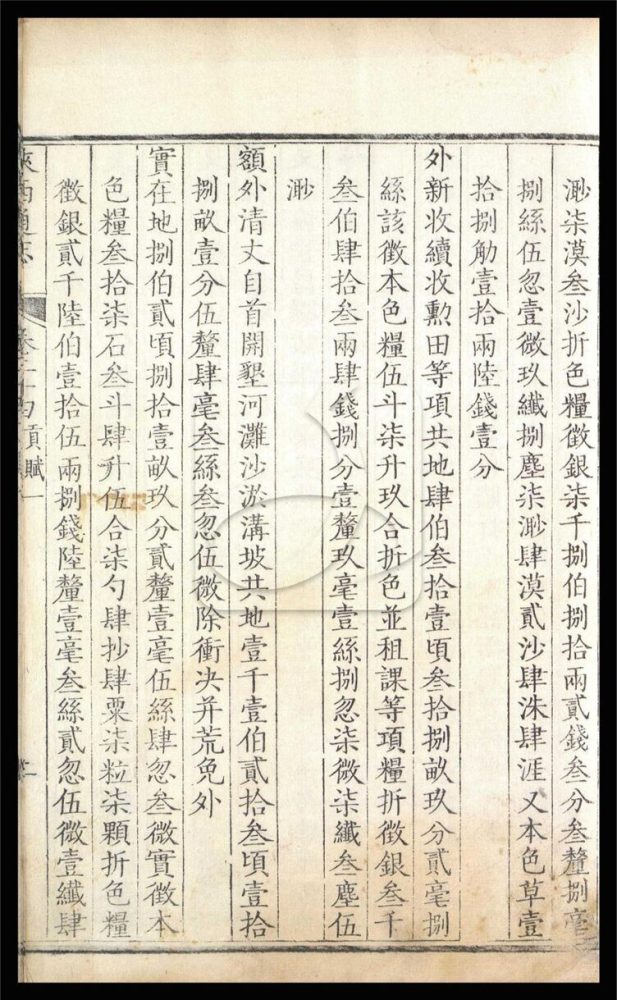 渺柒漠叁沙折色糧徵銀柒千捌伯捌拾兩貳錢叁分叁釐捌毫
捌絲伍忽壹微玖纖捌塵柒渺肆漠貳沙肆洙肆涯又本色草壹
拾捌觔壹拾兩陸錢壹分
外新收續收勲田等項共地肆伯叁拾壹頃叁拾捌畝玖分貳毫捌
絲該徵本色糧伍斗柒升玖合折色並租課等項糧折徵銀叁千
叁伯肆拾叁兩肆錢捌分壹釐玖毫壹絲捌忽柒微柒纖叁塵伍
渺
額外清丈自首開墾河灘沙淤溝坡共地壹千壹伯貳拾叁頃壹拾
捌畝壹分伍釐肆毫叁絲叁忽伍微除衝决并荒免外
實在地捌伯貳頃捌拾壹畝玖分貳釐壹毫伍絲肆忽叁微實徵本
色糧叁拾柒石叁斗肆升伍合柒勺肆抄肆粟柒粒柒顆折色糧
徵銀貳千陸伯壹拾伍兩捌錢陸釐壹毫叁絲貳忽伍微壹纖肆
陝西通志 卷二十四 貢賦一